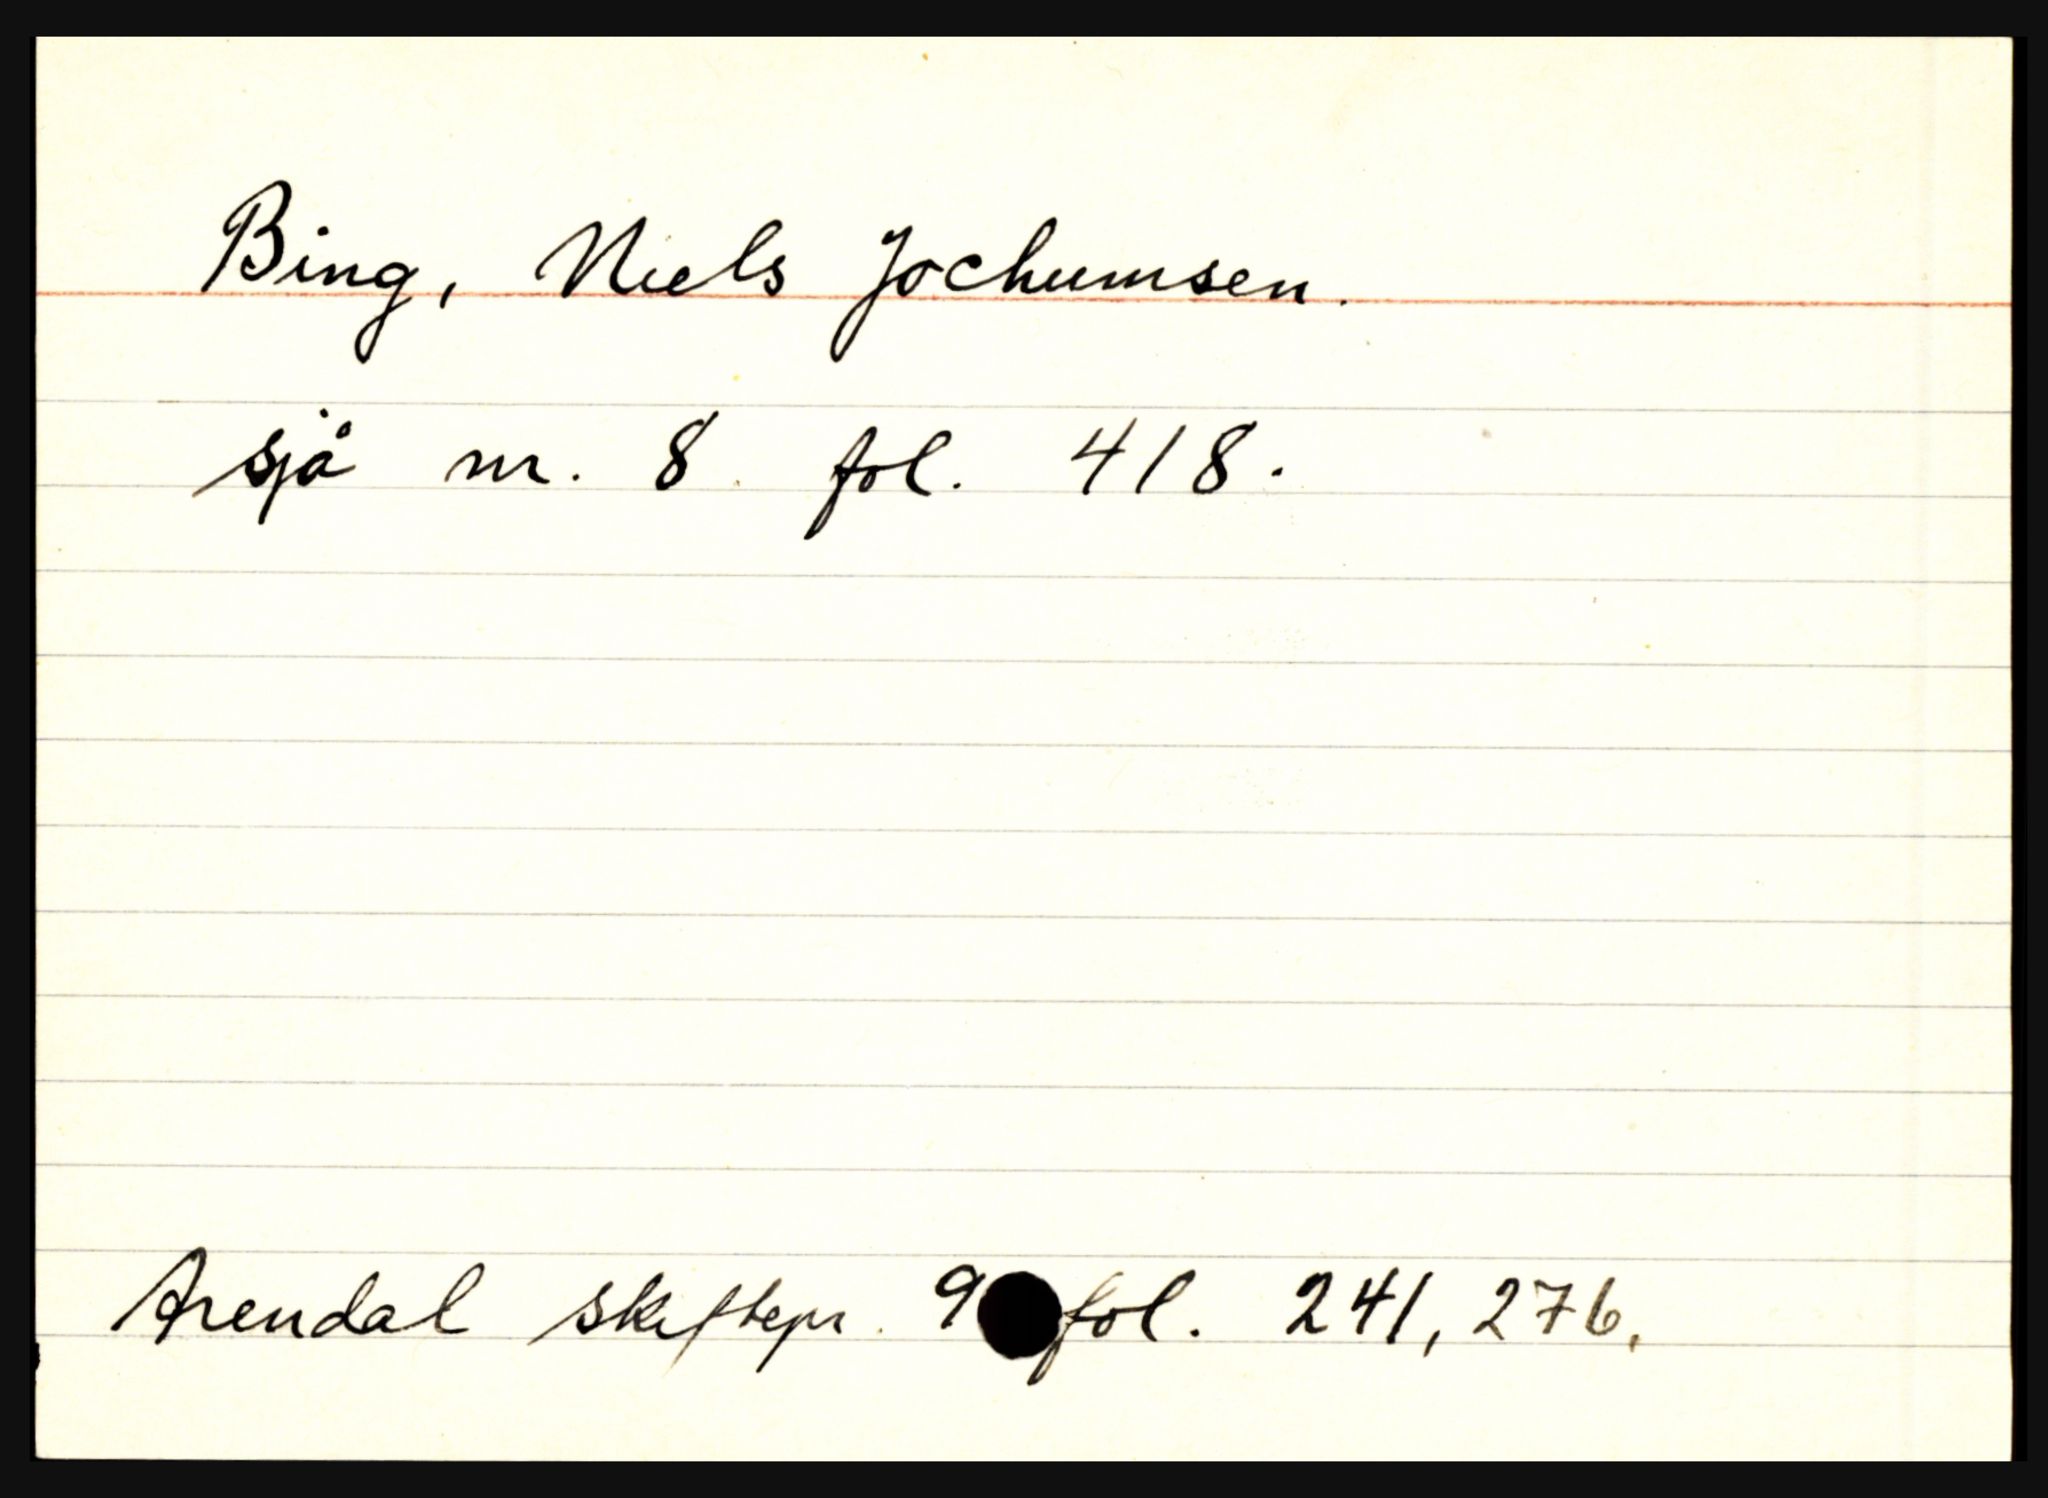 Bing, Niels Jochumsen.
sjå nr. 8 fol. 418.
Arendal skiftepr. 9 fol. 241, 276.